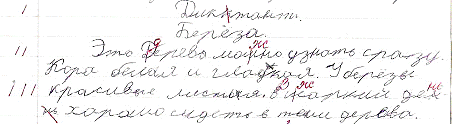 Диктант.
Берёза.
Это дерево можно узнать сразу.
Кора белая и гладкая. У берёзы
красивые листья. В жаркий день
хорашо сидеть в тени дерева.